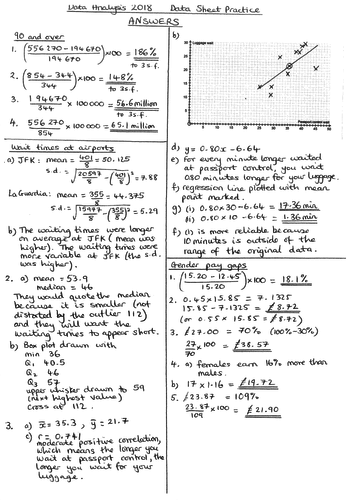 Data Analysis 2018 Data Sheet Practice
ANSWERS
90 and over
1. (556 270 - 194670 / 194 670) x 100 = 186% to 3 s.f.
2. (854 - 344 / 344) x 100 = 148% to 3 s.f.
3. 194670 / 344 x 100 000 = 56.6 million to 3 s.f.
4. 556 270 / 854 x 100000 = 65.1 million
Wait times at airports
a) JFK: mean = 401/8 = 50.125
s.d. = √(20597/8 - (401/8)²) = 7.88
LaGuardia: mean = 355/8 = 44.375
s.d. = √(15977/8 - (355/8)²) = 5.29
b) The waiting times were longer
on average at JFK (mean was
higher). The waiting times were
more variable at JFK (the s.d.
was higher).
2. a) mean = 53.9
median = 46
They would quote the median
because it is smaller (not
distorted by the outlier 112)
and they will want the
waiting times to appear short.
b) Box plot drawn with
min 36
Q₁ 40.5
Q₂ 46
Q₃ 57
upper whisker drawn to 59
(next highest value)
cross at 112.
3. a) x̄ = 35.3, ȳ = 21.7
c) r = 0.741
moderate positive correlation,
which means the longer you
wait at passport control, the
longer you wait for your
luggage.
b)
Luggage wait
Passport control wait
d) y = 0.80x - 6.64
e) for every minute longer waited
at passport control, you wait
0.80 minutes longer for your luggage.
f) regression line plotted with mean
point marked.
g) (i) 0.80 x 30 - 6.64 = 17.36 min
(ii) 0.80 x 10 - 6.64 = 1.36 min
f) (i) is more reliable because
10 minutes is outside of the
range of the original data.
Gender pay gaps
1. (15.20 - 12.45 / 15.20) x 100 = 18.1%
2. 0.45 x 15.85 = 7.1325
15.85 - 7.1325 = £8.72
(or 0.55 x 15.85 = £8.72)
3. £27.00 = 70% (100% - 30%)
27/70 x 100 = £38.57
4. a) females earn 16% more than
males.
b) 17 x 1.16 = £19.72
5. £23.87 = 109%
23.87/109 x 100 = £21.90